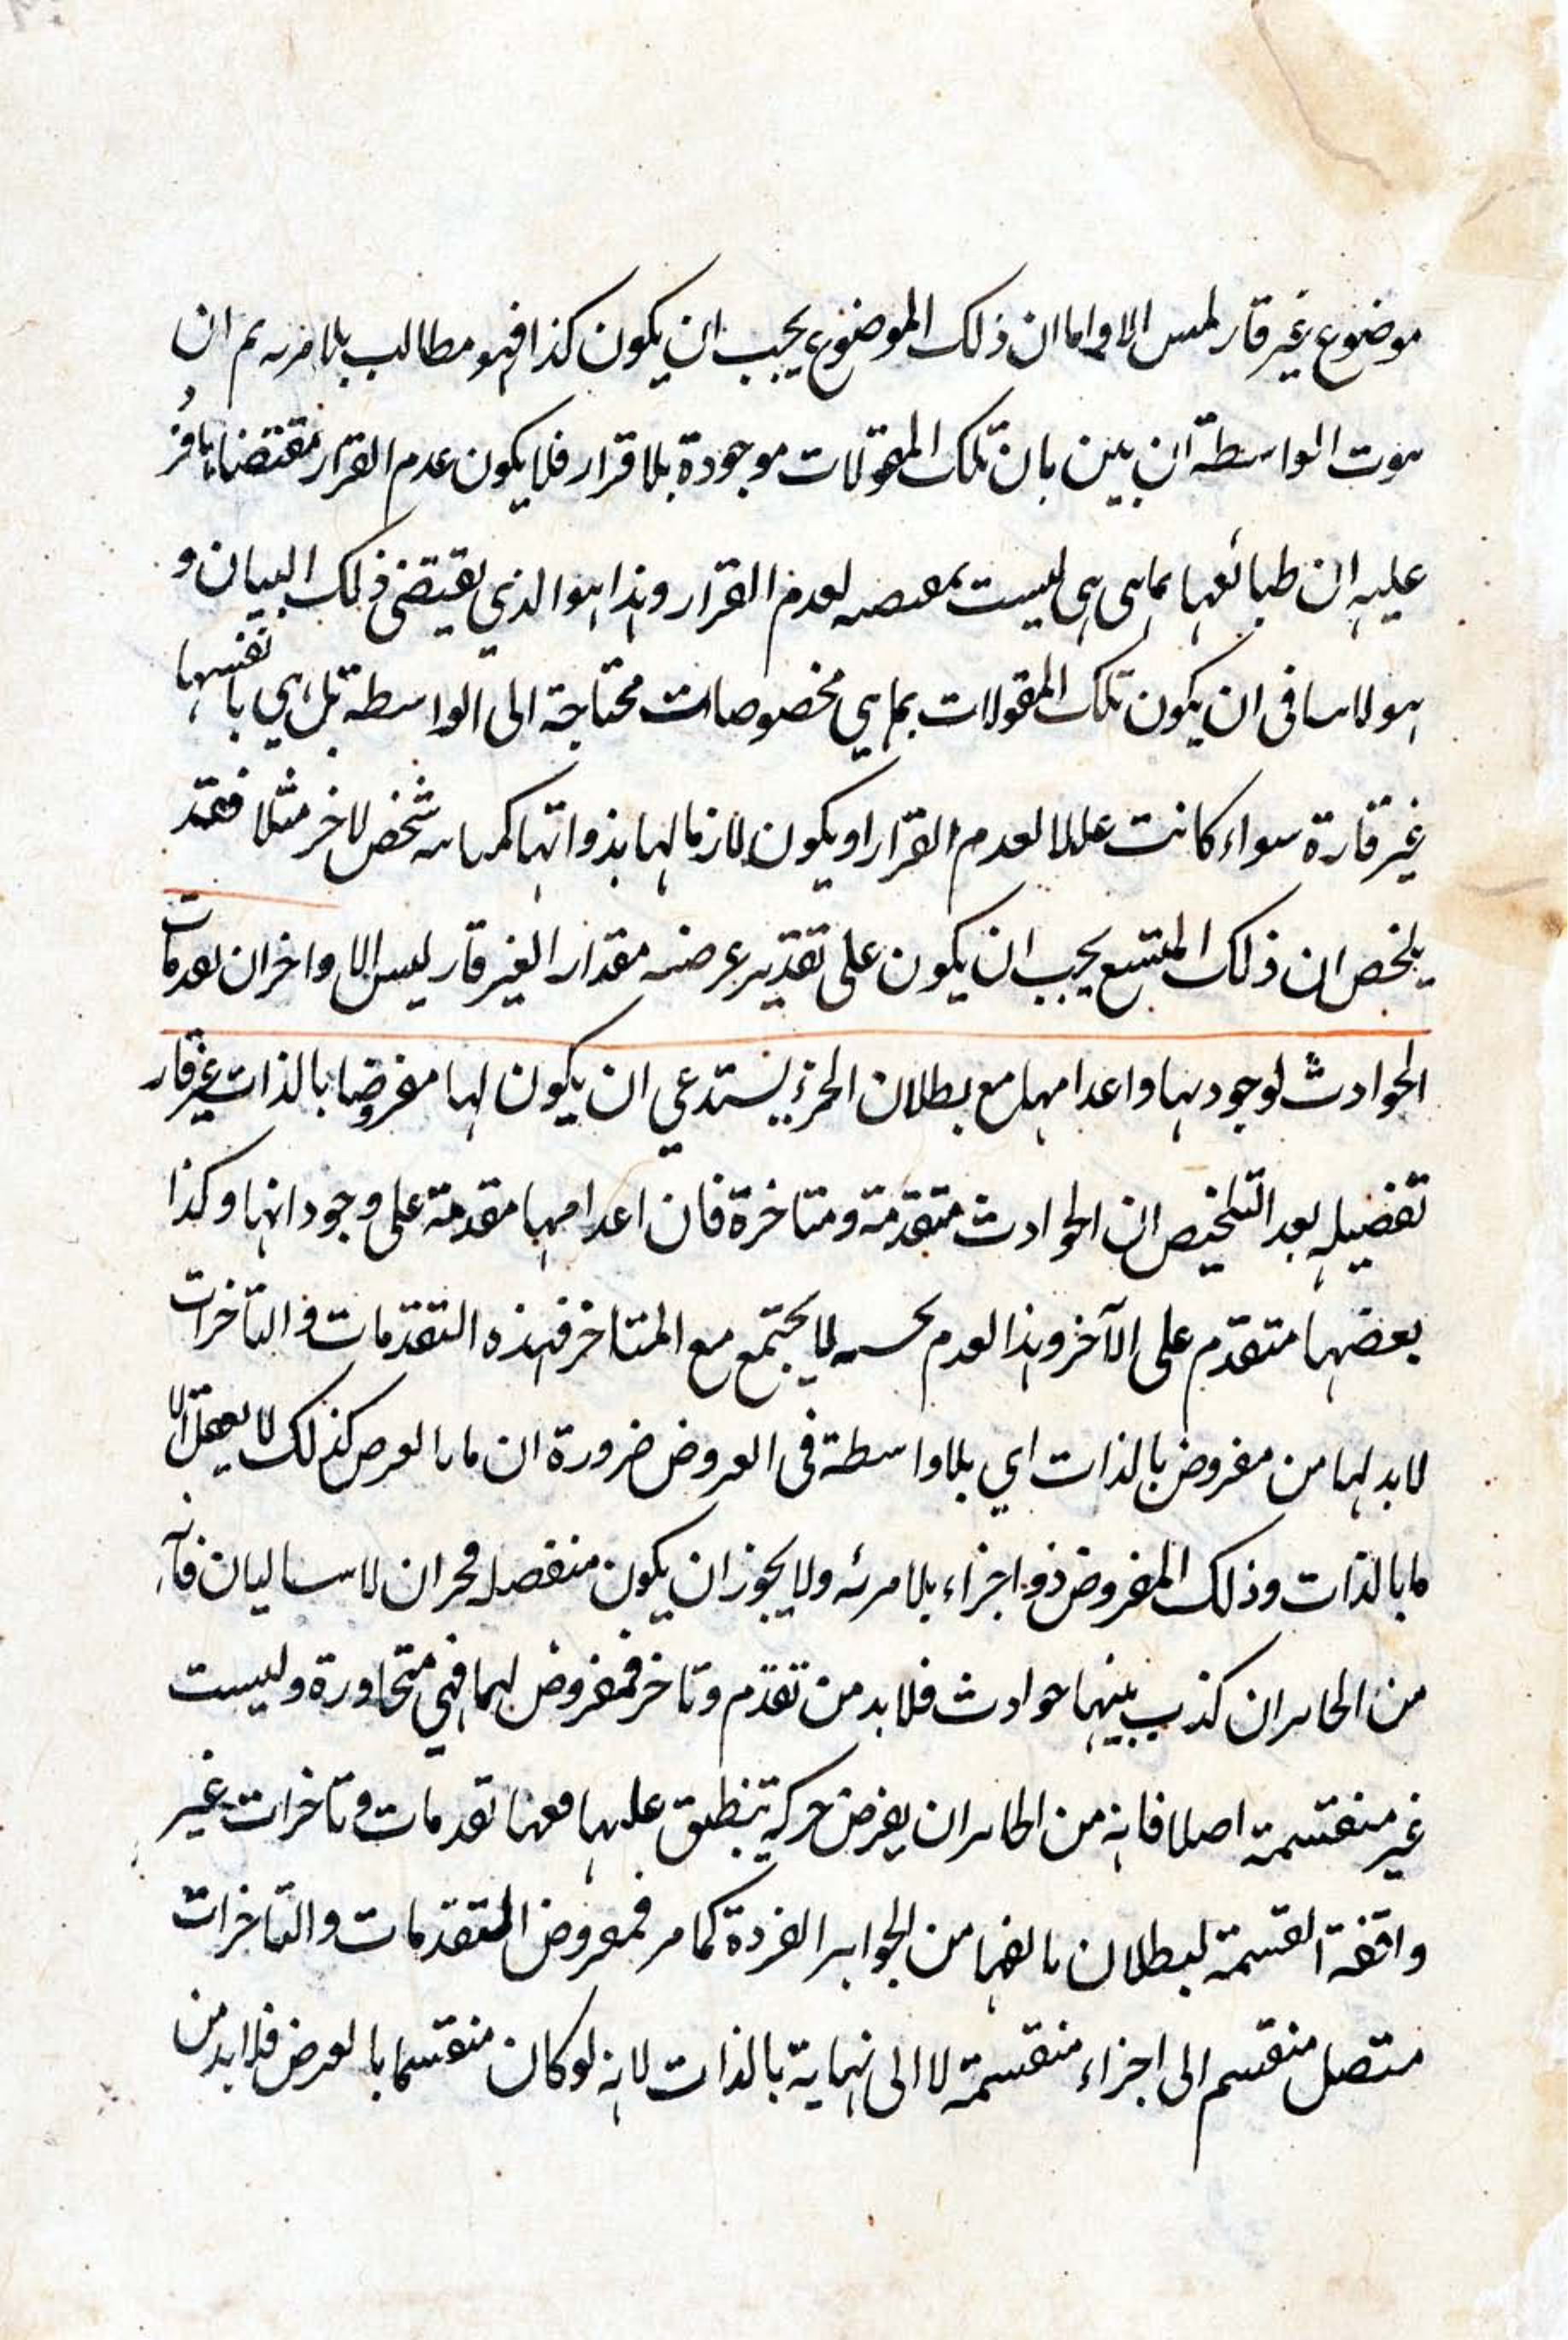 موضوع غير قار ليس الا واما ان ذلك الموضوع يجب ان يكون كذا فهو مطالب بلا مرية ثم ان
ثبوت الواسطة ان بين بان تلك المقولات موجودة بلا قرار فلا يكون عدم القرار مقتضا
عليه ان طبائعها بما هى هى ليست بمقتضيه لعدم القرار وهذا هو الذي يقتضى ذلك البيان و
هو لا ينافى ان يكون تلك المقولات بما هي مخصوصات محتاجة الى الواسطة بل هي بانفسها
غير قارة سواء كانت عللا لعدم القرار او يكون لازما لها بذواتها شخص لاخر مثلا فقد
يلخص ان ذلك المتسع يجب ان يكون على تقدير عرضيه مقدار الغير قار ليس الا واخر ان تقدمات
الحوادث لوجودها واعدامها مع بطلان الجزء يستدعي ان يكون لها معروضا بالذات غير قار
تفصيله بعد التلخيص ان الحوادث متقدمة ومتاخرة فان اعدامها مقدمة على وجوداتها وكذا
بعضها متقدم على الآخر وهذا لعدم بحسبه لا يجتمع مع المتاخر فهذه التقدمات والتاخرات
لا بد لها من معروض بالذات اي بلا واسطة فى العروض ضرورة ان ما بالعرض كذلك لا يعقل الا
ما بالذات وذلك المعروض ذو اجزاء بلا مرئه ولا يجوز ان يكون منفصله فجران لا سياليان فانه
من الجايران كذب بينهما حوادث فلا بد من تقدم وتاخر فمعروض لهما فهي متجاورة وليست
غير منقسمة اصلا فانه من الجايران يفرض حركة تنطبق عليها فهنا تقدمات وتاخرات غير
واقفة القسمة لبطلان تالفها من الجواهر الفردة كما مر فمعروض المتقدمات والتاخرات
متصل منقسم الى اجزاء منقسمة لا الى نهاية بالذات لانه لو كان منقسما بالعرض فلا بد من